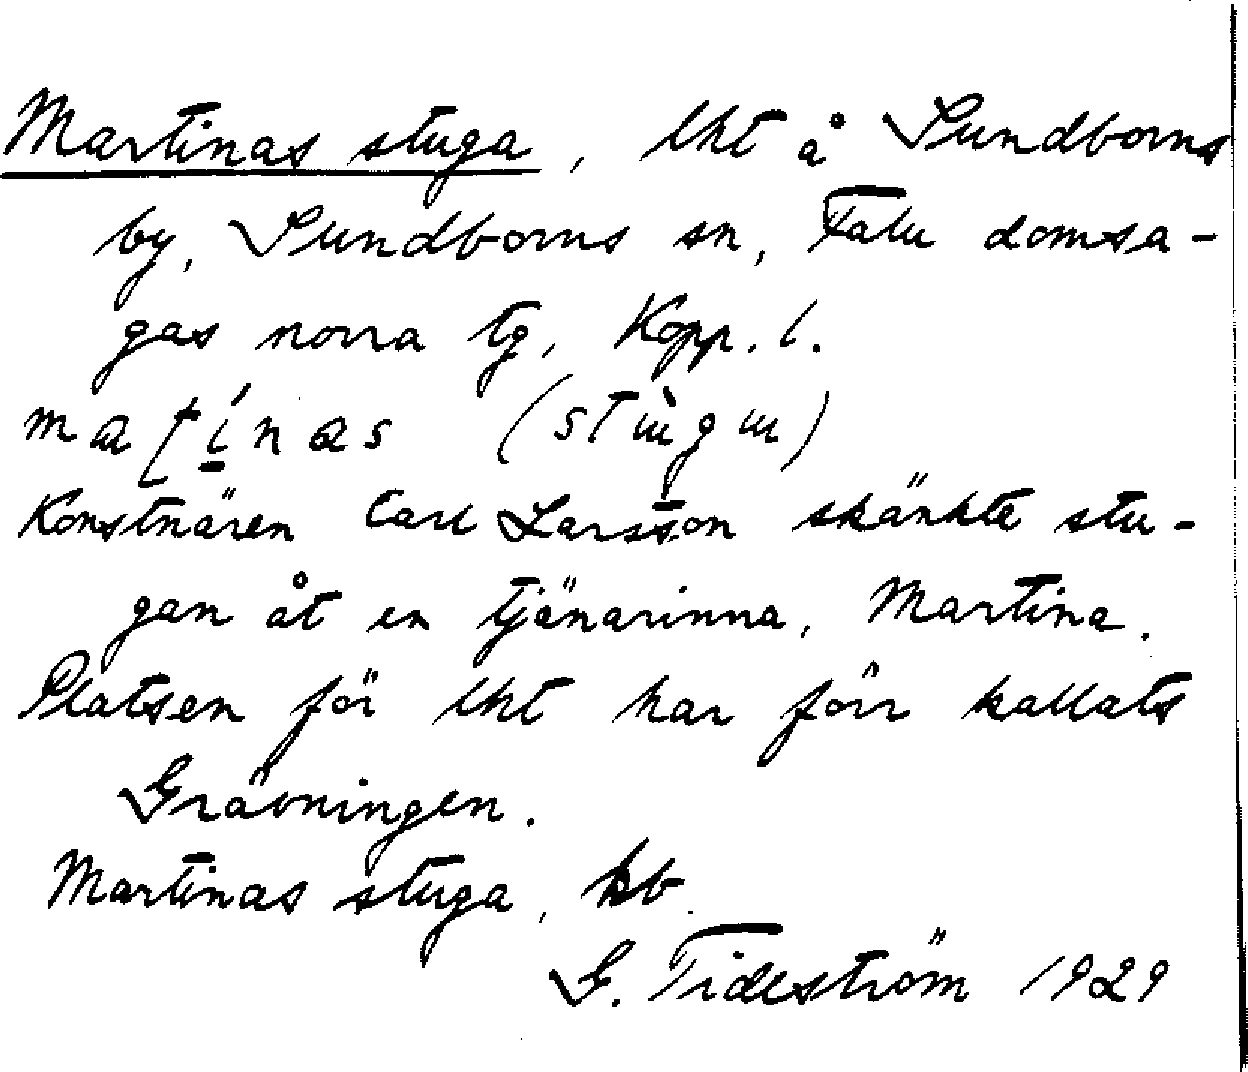 Martinas stuga, lht å Sundborns
by, Sundborns sn, Falu domsa-
gas norra tg, Kopp. l.
(stùgu)
Konstnären Carl Larsson skänkte stu-
gan åt en tjänarinna, Martina.
Platsen för lht har förr kallats
Grävningen.
Martinas stuga, kb.
G. Tideström 1929